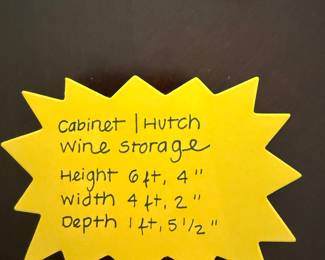 Cabinet | Hutch
Wine Storage
Height 6 ft, 4"
Width 4 ft, 2"
Depth 1 ft, 5 1/2"